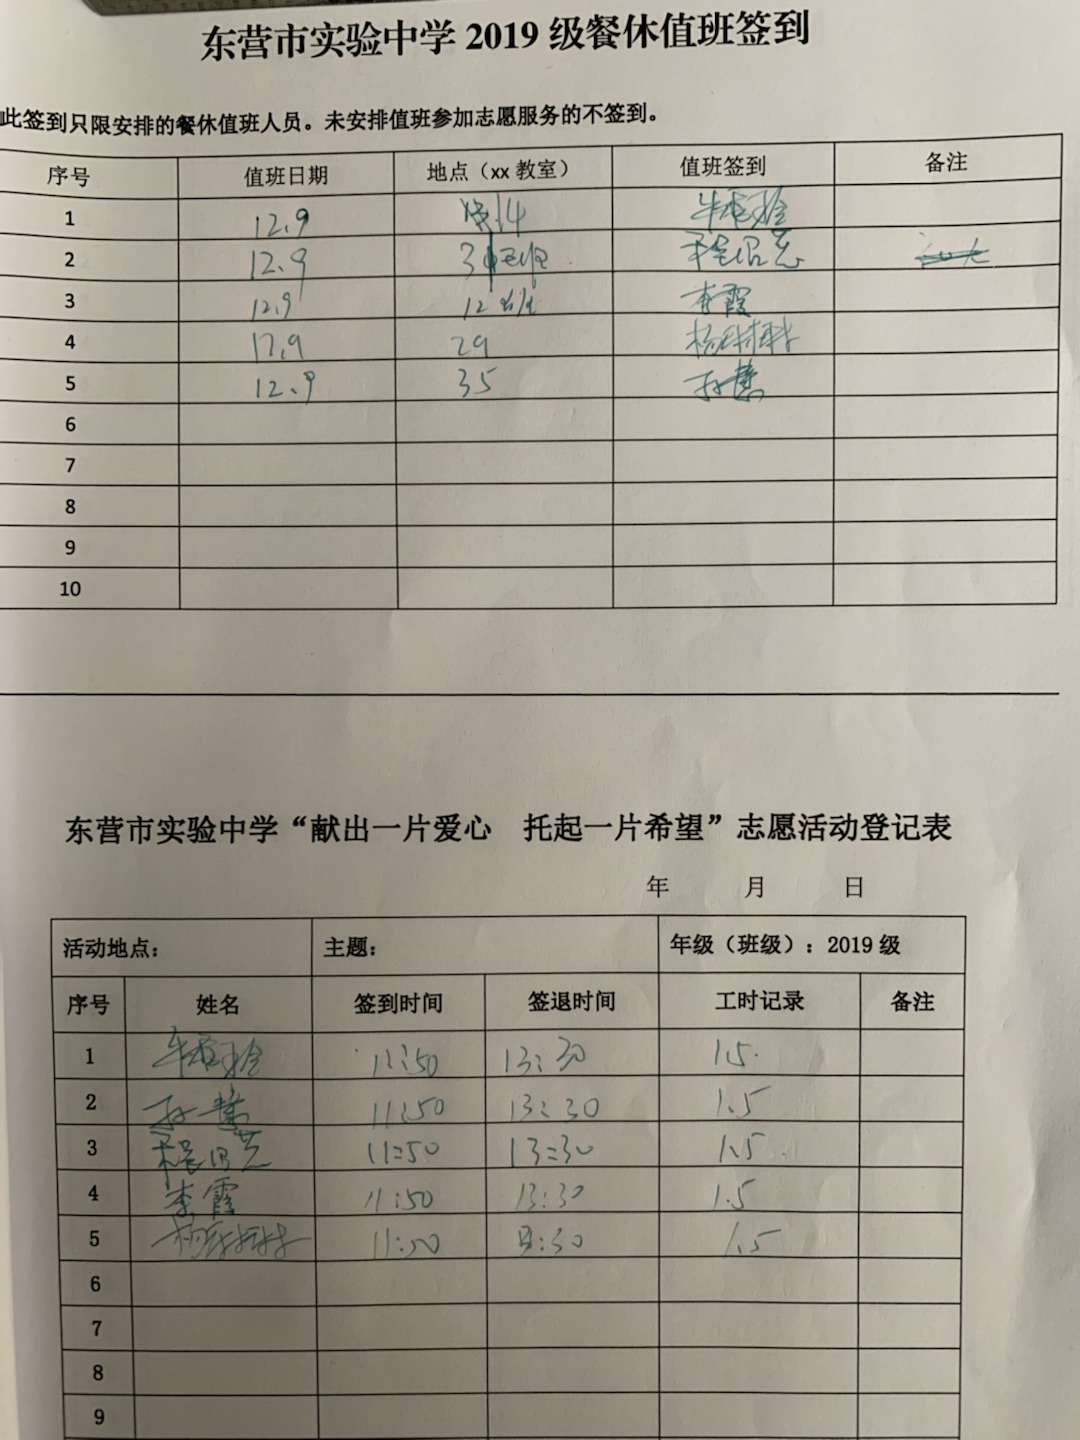 东营市实验中学 2019 级餐休值班签到
此签到只限安排的餐休值班人员。未安排值班参加志愿服务的不签到。
序号 值班日期 地点（xx 教室） 值班签到 备注
1 12.9 14
2 12.9 3
3 12.9 12班 李霞
4 12.9 29
5 12.9 35 孙慧
6
7
8
9
10
东营市实验中学“献出一片爱心 托起一片希望”志愿活动登记表
年 月 日
活动地点： 主题： 年级（班级）：2019 级
序号 姓名 签到时间 签退时间 工时记录 备注
1 11:50 13:30 1.5
2 孙慧 11:50 13:30 1.5
3 11:50 13:30 1.5
4 李霞 11:50 13:30 1.5
5 11:50 :30 1.5
6
7
8
9